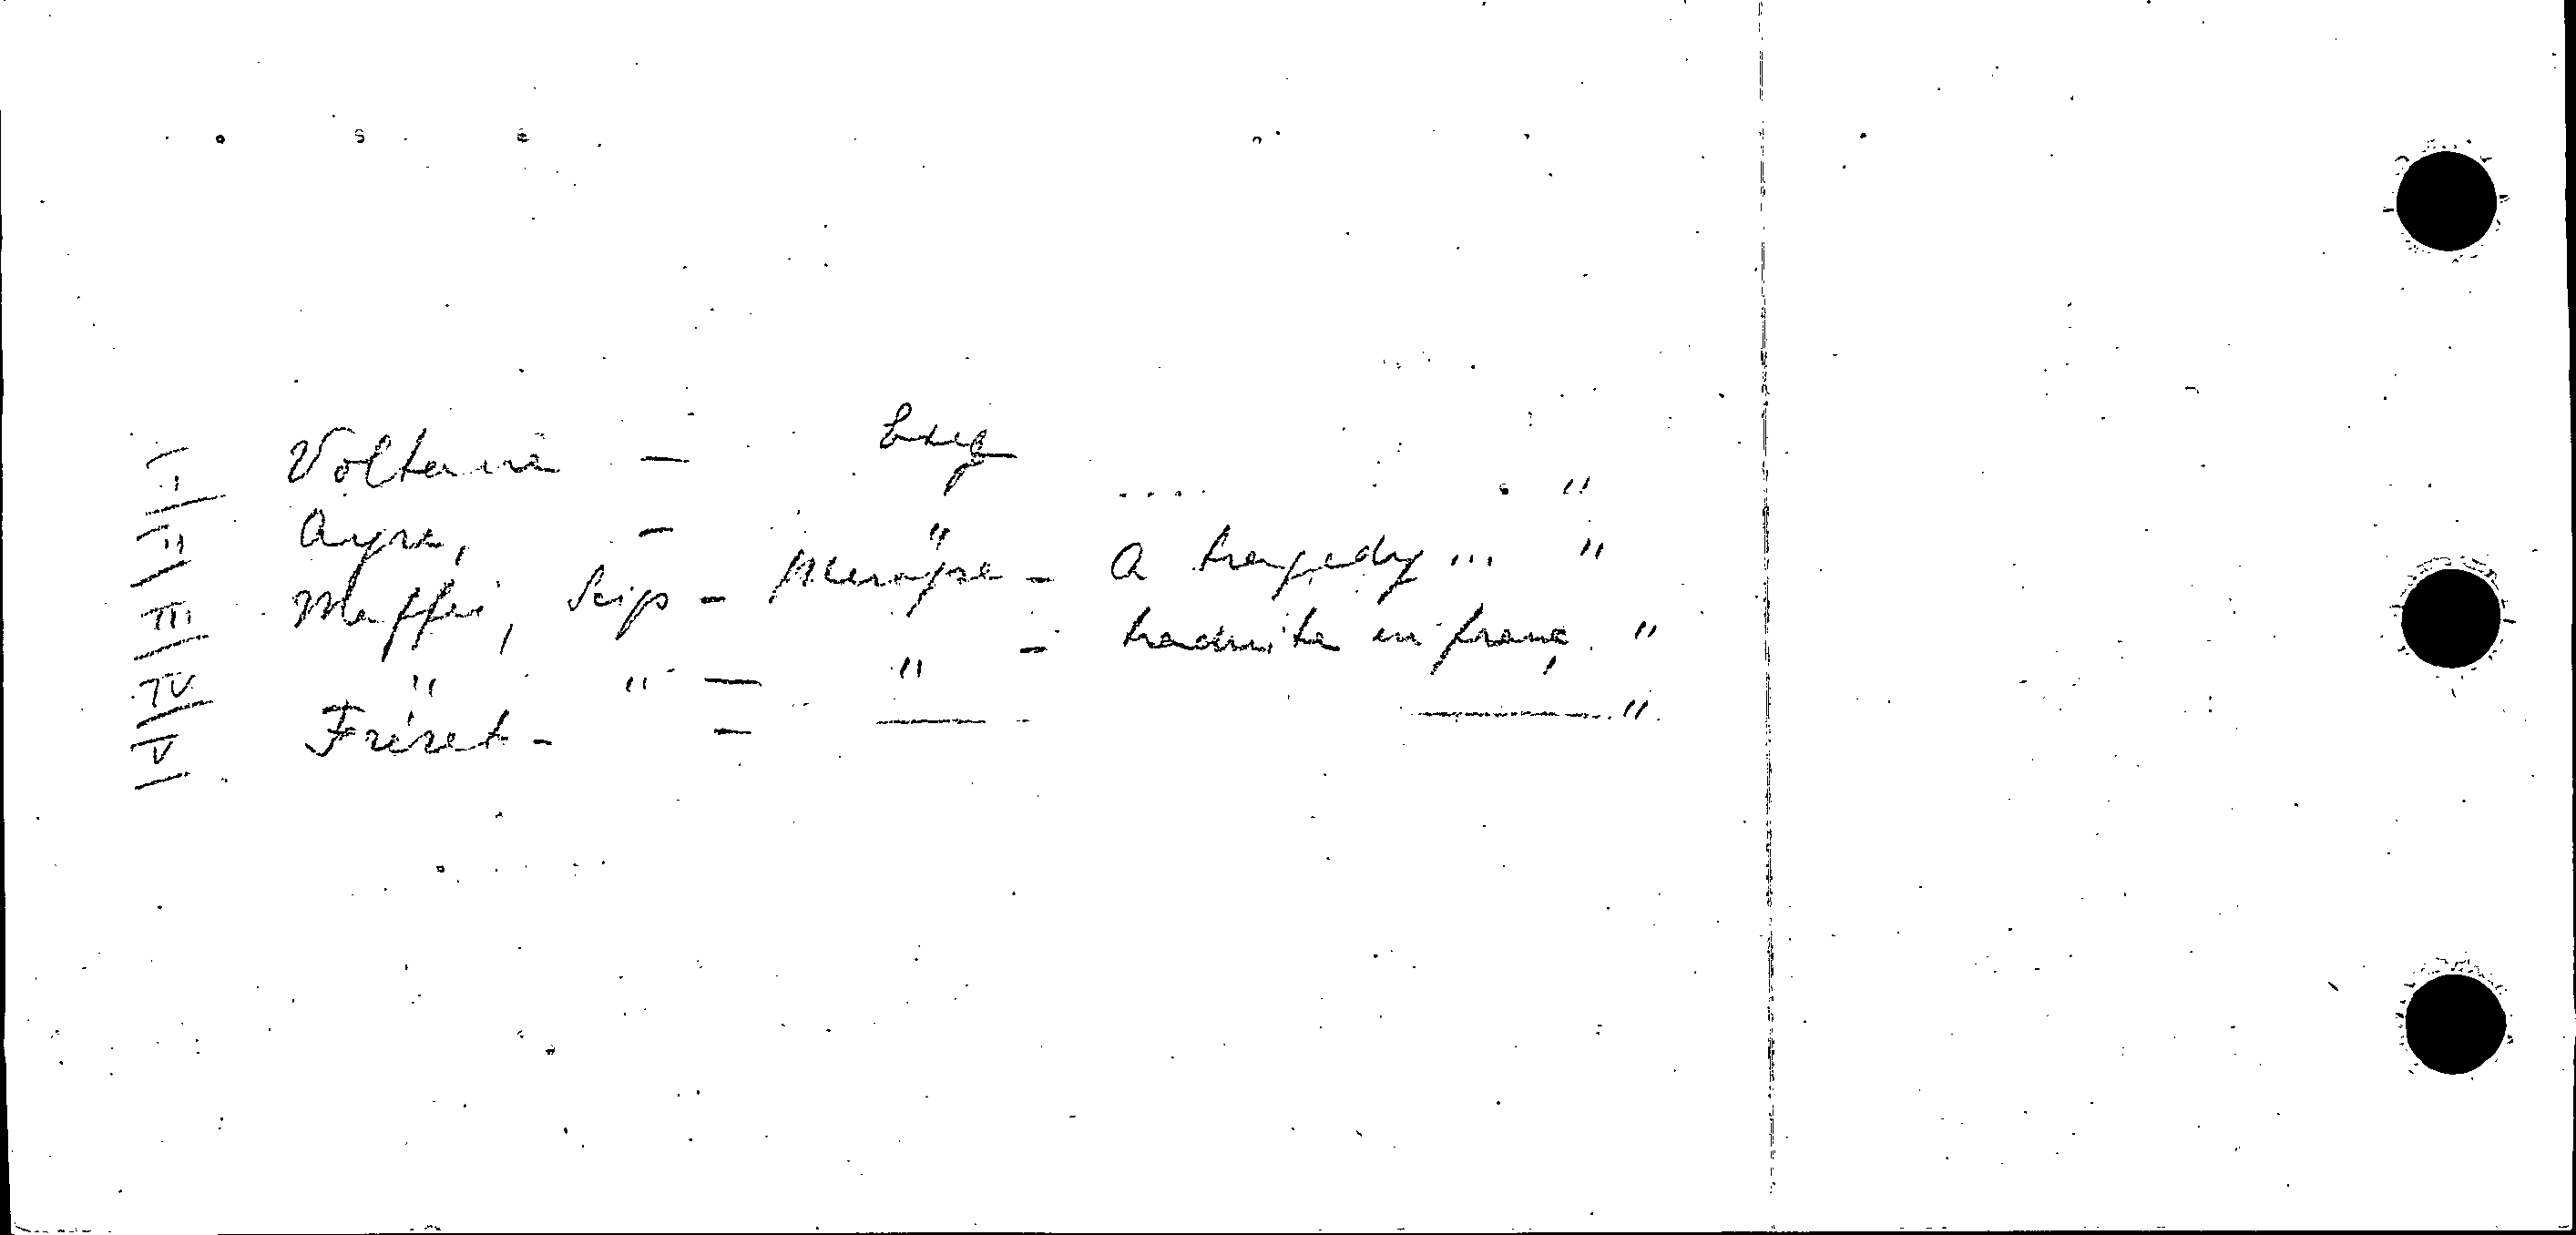 I Voltaire — Exempl .... "
II Ayre, — " "
III Maffei, Scip — Merope — A tragedy ... "
IV " " — " — traduite en franç. "
V Fréret — — —— —— "